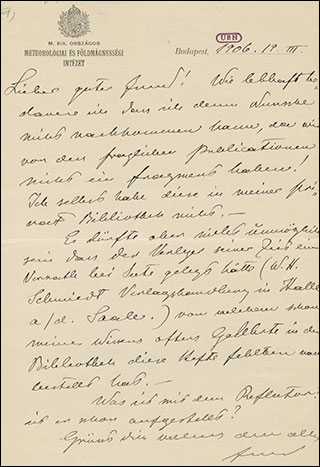 UBH
M. KIR. ORSZÁGOS
METEOROLÓGIAI ÉS FÖLDMÁGNESSÉGI
INTÉZET
Budapest, 1906. 19 III.
Lieber guter Freund! Wie lebhaft be-
dauere ich dass ich deinem Wunsche
nicht nachkommen kann, da wir
von den fraglichen Publicationen
nicht ein Fragment haben!
Ich selbst habe diese in meiner Pri-
vat Bibliothek nicht. —
Es dürfte aber nicht unmöglich
sein dass der Verleger seiner Zeit ein
Vorrath bei Seite gelegt hätte (W. H.
Schmiedt Verlagshandlung in Halle
a/d. Saale.) von welchem schon
meines Wissens öfters Gelehrte in deren
Bibliothek diese Hefte fehlten nach-
bestellt hat. —
Was ist mit dem Reflector
ist er schon aufgestellt?